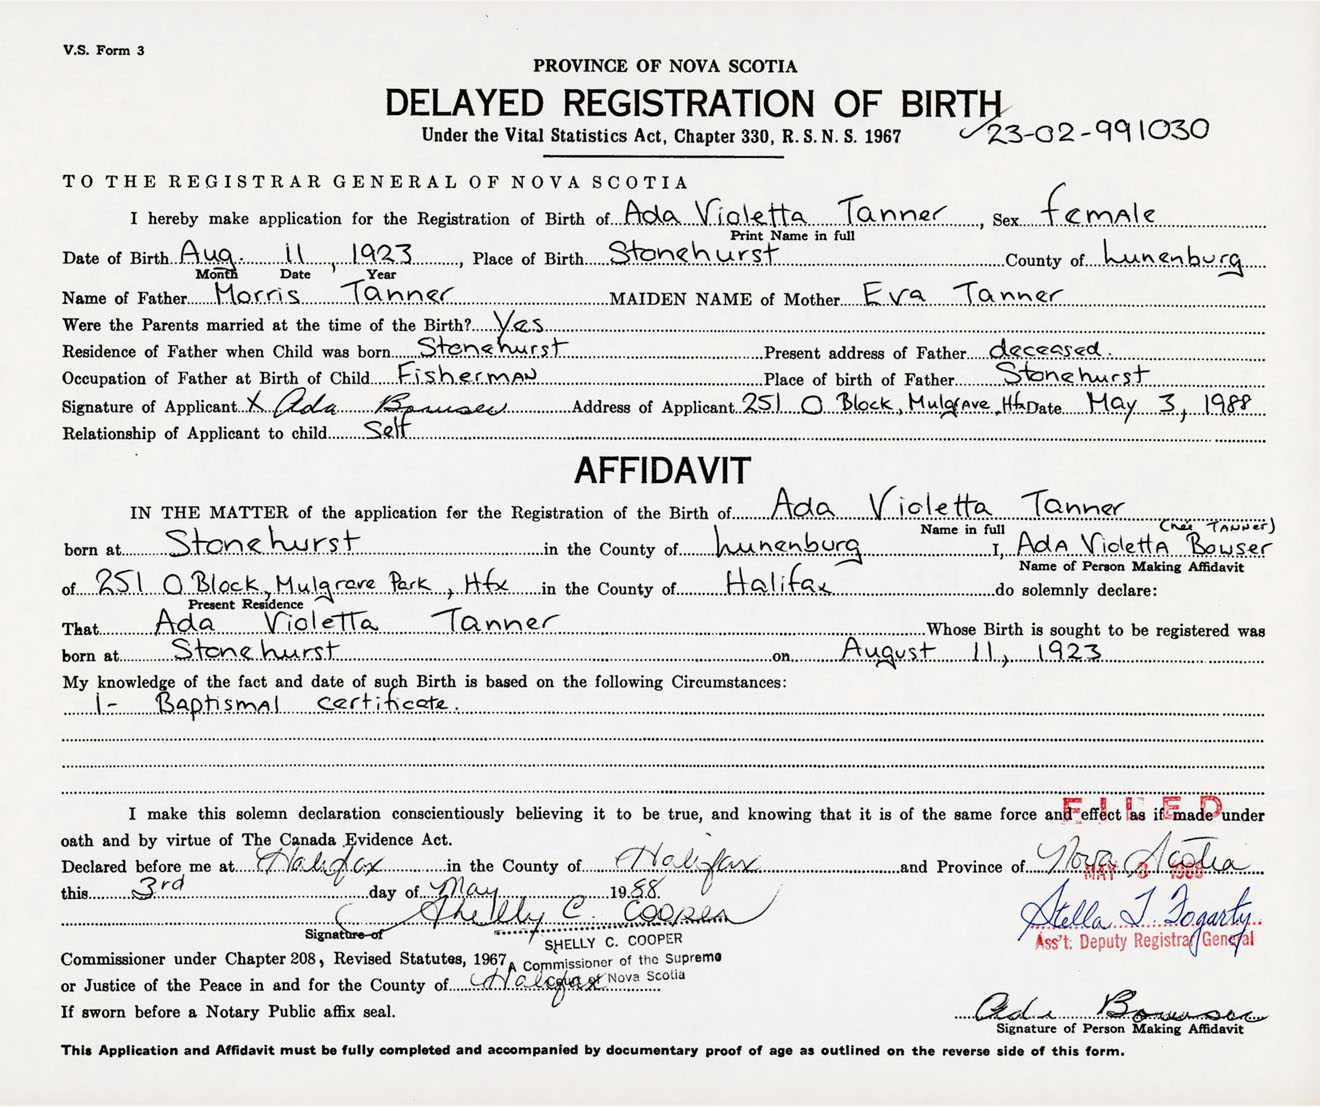 V.S. Form 3
PROVINCE OF NOVA SCOTIA
DELAYED REGISTRATION OF BIRTH
Under the Vital Statistics Act, Chapter 330, R. S. N. S. 1967 ✓23-02-991030
TO THE REGISTRAR GENERAL OF NOVA SCOTIA
I hereby make application for the Registration of Birth of Ada Violetta Tanner, Sex female
Print Name in full
Date of Birth Aug. 11, 1923, Place of Birth Stonehurst County of Lunenburg
Month Date Year
Name of Father Morris Tanner MAIDEN NAME of Mother Eva Tanner
Were the Parents married at the time of the Birth? Yes
Residence of Father when Child was born Stonehurst Present address of Father deceased.
Occupation of Father at Birth of Child Fisherman Place of birth of Father Stonehurst
Signature of Applicant X Ada Bowser Address of Applicant 251 O Block, Mulgrave, Hfx Date May 3, 1988
Relationship of Applicant to child Self
AFFIDAVIT
IN THE MATTER of the application for the Registration of the Birth of Ada Violetta Tanner
Name in full (née Tanner)
born at Stonehurst in the County of Lunenburg I, Ada Violetta Bowser
Name of Person Making Affidavit
of 251 O Block, Mulgrave Park, Hfx in the County of Halifax do solemnly declare:
Present Residence
That Ada Violetta Tanner Whose Birth is sought to be registered was
born at Stonehurst on August 11, 1923
My knowledge of the fact and date of such Birth is based on the following Circumstances:
1- Baptismal certificate.
I make this solemn declaration conscientiously believing it to be true, and knowing that it is of the same force and effect as if made under
FILED
oath and by virtue of The Canada Evidence Act.
Declared before me at Halifax in the County of Halifax and Province of Nova Scotia
MAY 3 1988
this 3rd day of May 1988
Shelly C. Cooper
Stella T. Fogarty
Signature of
SHELLY C. COOPER
Ass't. Deputy Registrar General
Commissioner under Chapter 208, Revised Statutes, 1967
A Commissioner of the Supreme
Court of Nova Scotia
or Justice of the Peace in and for the County of Halifax
If sworn before a Notary Public affix seal.
Ada Bowser
Signature of Person Making Affidavit
This Application and Affidavit must be fully completed and accompanied by documentary proof of age as outlined on the reverse side of this form.